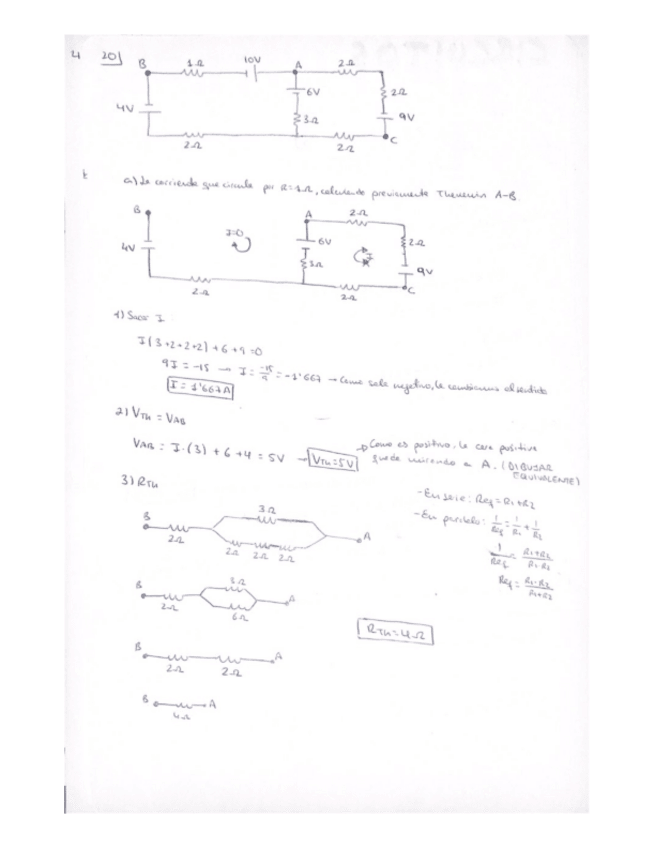 4 20)
B 1Ω 10V A 2Ω
6V 2Ω
4V 3Ω 9V
C
2Ω 2Ω
a) La corriente que circula por R=1Ω, calculando previamente Thevenin A-B
B A 2Ω
I=0 6V 2Ω
4V 3Ω I 9V
C
2Ω 2Ω
1) Sacar I
I(3+2+2+2)+6+9=0
9I = -15 → I = -15/9 = -1'667 → Como sale negativo, le cambiamos el sentido
I = 1'667A
2) VTH = VAB
VAB = I·(3) + 6 + 4 = 5V → VTH=5V → Como es positivo, la cara positiva
queda mirando a A. (DIBUJAR
EQUIVALENTE)
3) RTH
- En serie: Req = R1+R2
- En paralelo: 1/Req = 1/R1 + 1/R2
1/Req = R1+R2/R1·R2
Req = R1·R2/R1+R2
B 3Ω A
2Ω 2Ω 2Ω 2Ω
B 3Ω A
2Ω 6Ω
RTH=4Ω
B A
2Ω 2Ω
B A
4Ω